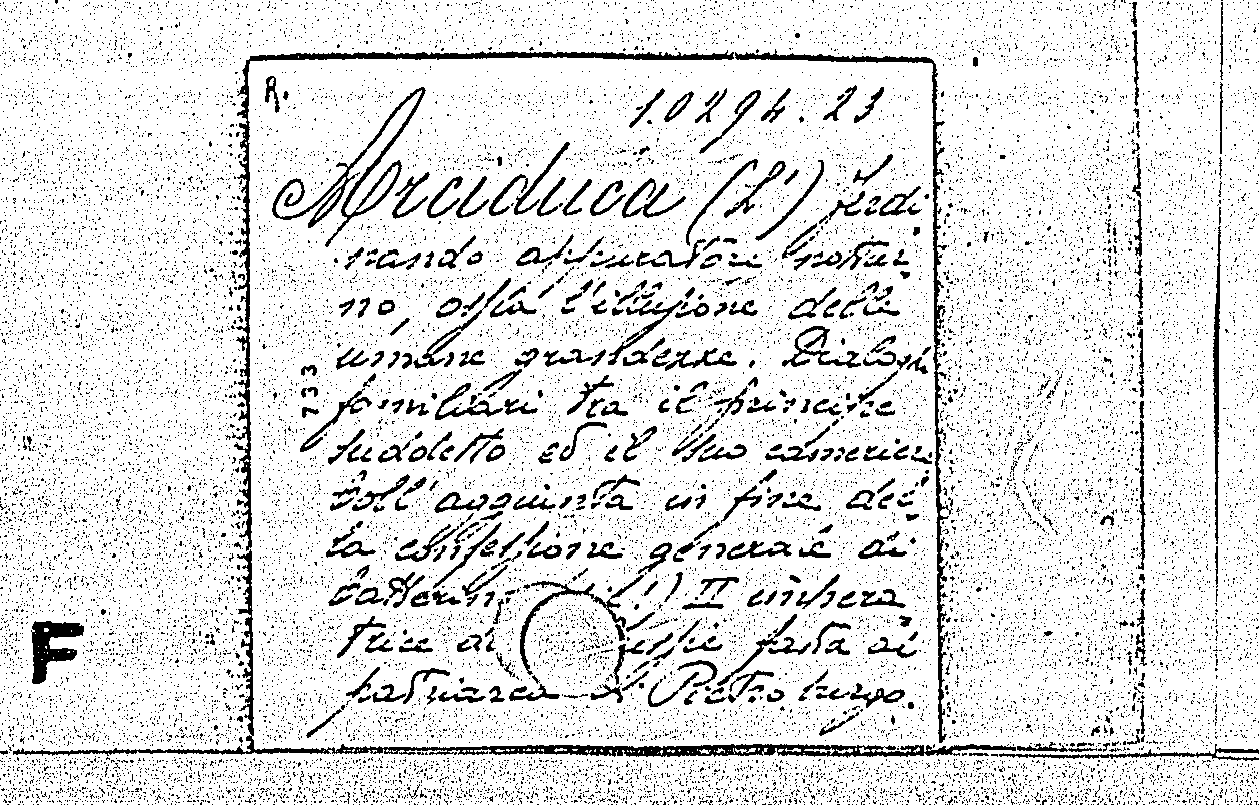 R.
1.0294.23
Arciduca (L') Ferdi
nando appuratore nottur-
no, ossia l'illusione delle
umane grandezze. Dialoghi
733
famigliari tra il principe
suddetto ed il suo camerier
Coll'aggiunta in fine del-
la confessione generale di
II impera
trice di fatta al
patriarca Pietro burgo.
F